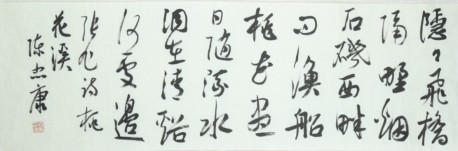 隱〻飛橋
隔野烟
石磯西畔
问漁船
桃花盡
日随流水
洞在清谿
何處邊
張旭詩桃
花溪
陈忠康